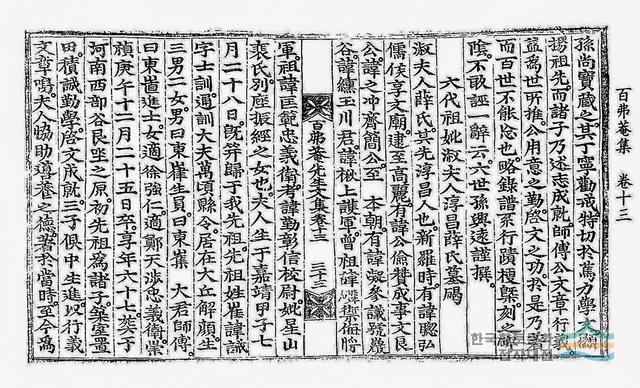 百弗菴集 卷十三
孫尚寶藏之其丁寧勸戒特切於篤力學大顯
揚祖先而諸子乃述志成就師傅公文章行義
益為世所推公用意之勤啓文之功於是乃著
而百世不能忘也略錄譜系行蹟梗槩刻之
陰不敢誣一辭云六世孫興遠謹撰
六代祖妣淑夫人淳昌薛氏墓碣
淑夫人薛氏其先淳昌人也新羅時有諱聰弘
儒侯享文廟逮至高麗有諱公儉贊成事文良
公諱之冲齊簡公至 本朝有諱凝參議號嚴
谷諱纘玉川君諱楸上護軍曾祖諱 禦侮將
百弗菴先生文集卷之十三 三十三
軍祖諱匡範忠義衛考諱勤彰信校尉妣星山
裵氏別座振經之女也夫人生于嘉靖甲子七
月二十八日旣筓歸于我先祖先祖姓崔諱誡
字士訓通訓大夫萬頃縣令居在大丘解顏生
三男二女男曰東 生員曰東嵂 大君師傅
曰東 進士女適徐強仁適鄭天涉忠義衛崇
禎庚午十二月二十五日卒享年六十七葬于
河南西部谷艮坐之原初先祖為諸子築室置
田積誡勤學啓文成就三子俱中生進以行義
文章鳴夫人恊助導養之德著於當時至今為